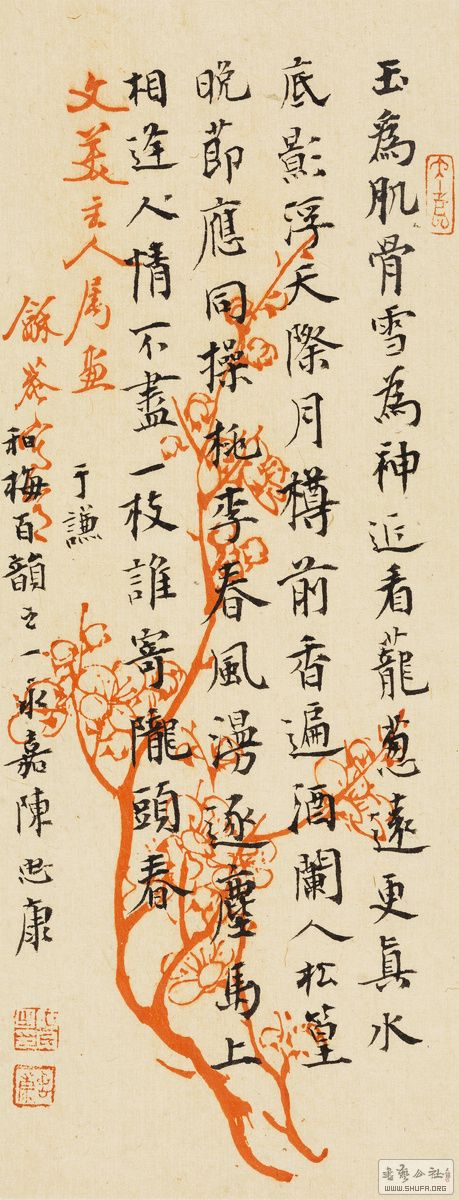 玉為肌骨雪為神近看蘢蔥遠更真水
底影浮天際月樽前香遍酒闌人松篁
晚節應同操桃李春風漫逐塵馬上
相逢人情不盡一枝誰寄隴頭春
于謙
和梅百韻之一永嘉陳忠康
文美主人属画
WWW.SHUFA.ORG